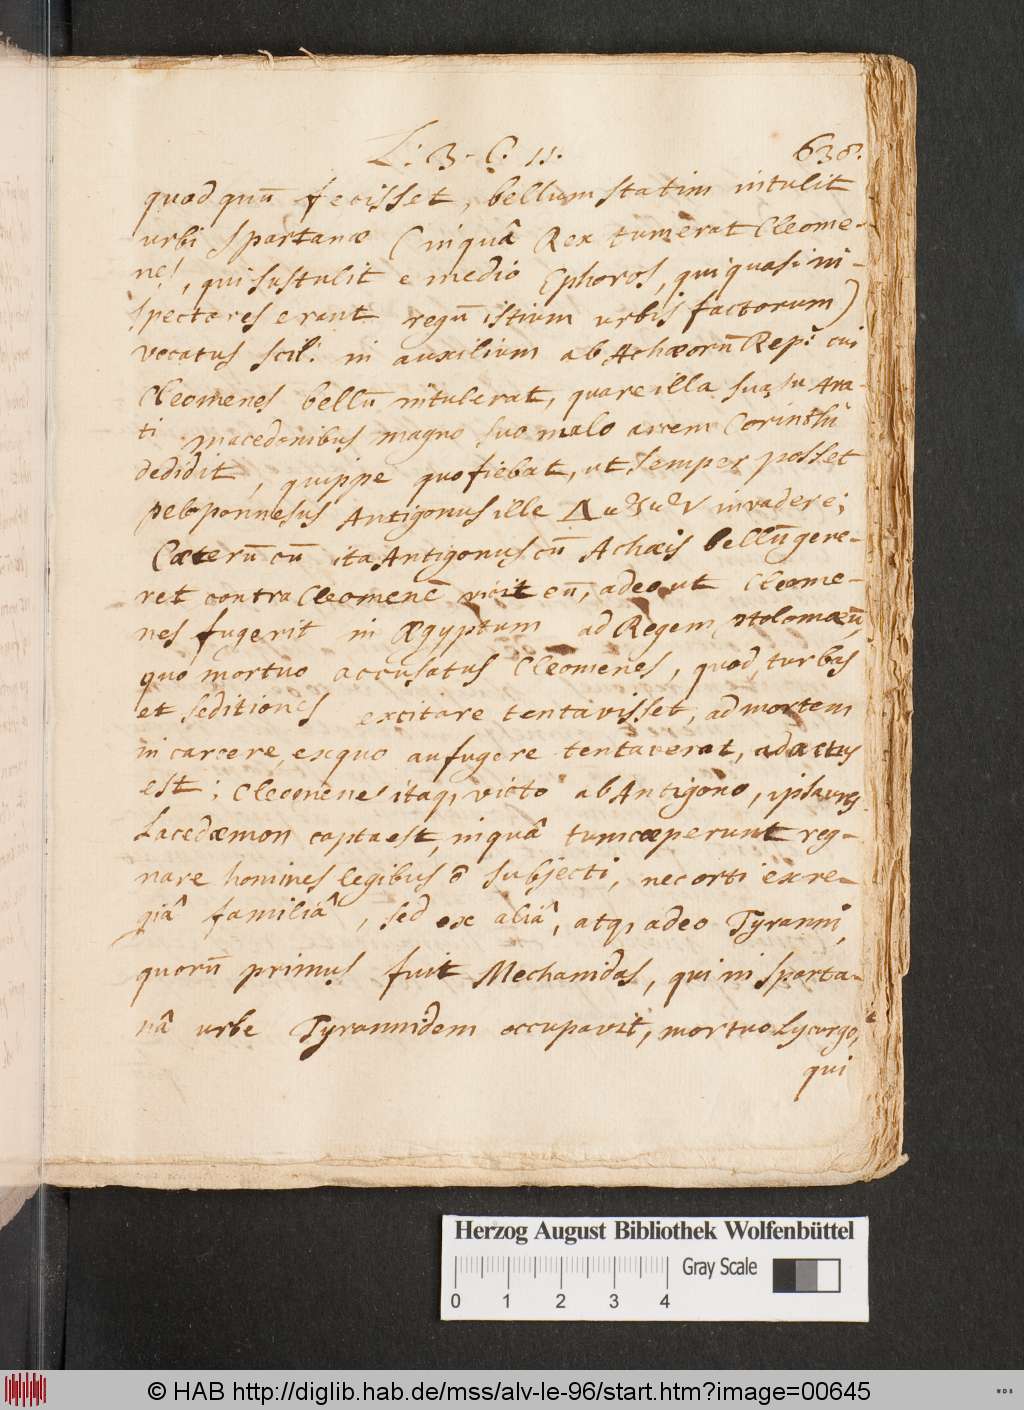 L: 3. C. 11. 638.
quod quū fecisset, bellum statim intulit
urbi Spartanæ (in quâ Rex tum erat Cleome-
nes, qui sustulit e medio Ephoros, qui quasi in-
spectores erant regū istium urbis factorum)
vocatus scil: in auxilium ab Achæorū Rep: cui
Cleomenes bellū intulerat, quare illa suasu Ara-
ti Macedonibus magno suo malo arcem Corinthi
dedidit, quippe quo fiebat, ut semper posset
peloponnesus Antigonus ille invadere;
Cæterū cū ita Antigonus cū Achæis bellū gere-
ret contra Cleomenē vicit eū, adeo ut Cleome-
nes fugerit in Ægyptum ad Regem Ptolomæū,
quo mortuo accusatus Cleomenes, quod turbas
et seditiones excitare tentavisset, ad mortem
in carcere, ex quo aufugere tentaverat, adactus
est; Cleomene itaq, victo ab Antigono, ipsa urbs
Lacedæmon capta est, in quâ tum cœperunt reg-
nare homines legibus ō subjecti, nec orti ex re-
giâ familiâ, sed ex aliâ, atq, adeo Tyranni,
quorū primus fuit Mechanidas, qui in Sparta-
nâ urbe Tyrannidem occupavit, mortuo Lycurgo,
qui
Herzog August Bibliothek Wolfenbüttel
0 1 2 3 4 Gray Scale
© HAB http://diglib.hab.de/mss/alv-le-96/start.htm?image=00645